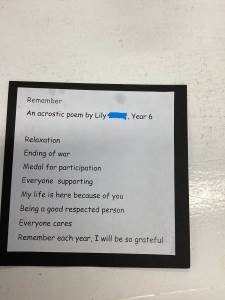 Remember
An acrostic poem by Lily , Year 6
Relaxation
Ending of war
Medal for participation
Everyone supporting
My life is here because of you
Being a good respected person
Everyone cares
Remember each year, I will be so grateful